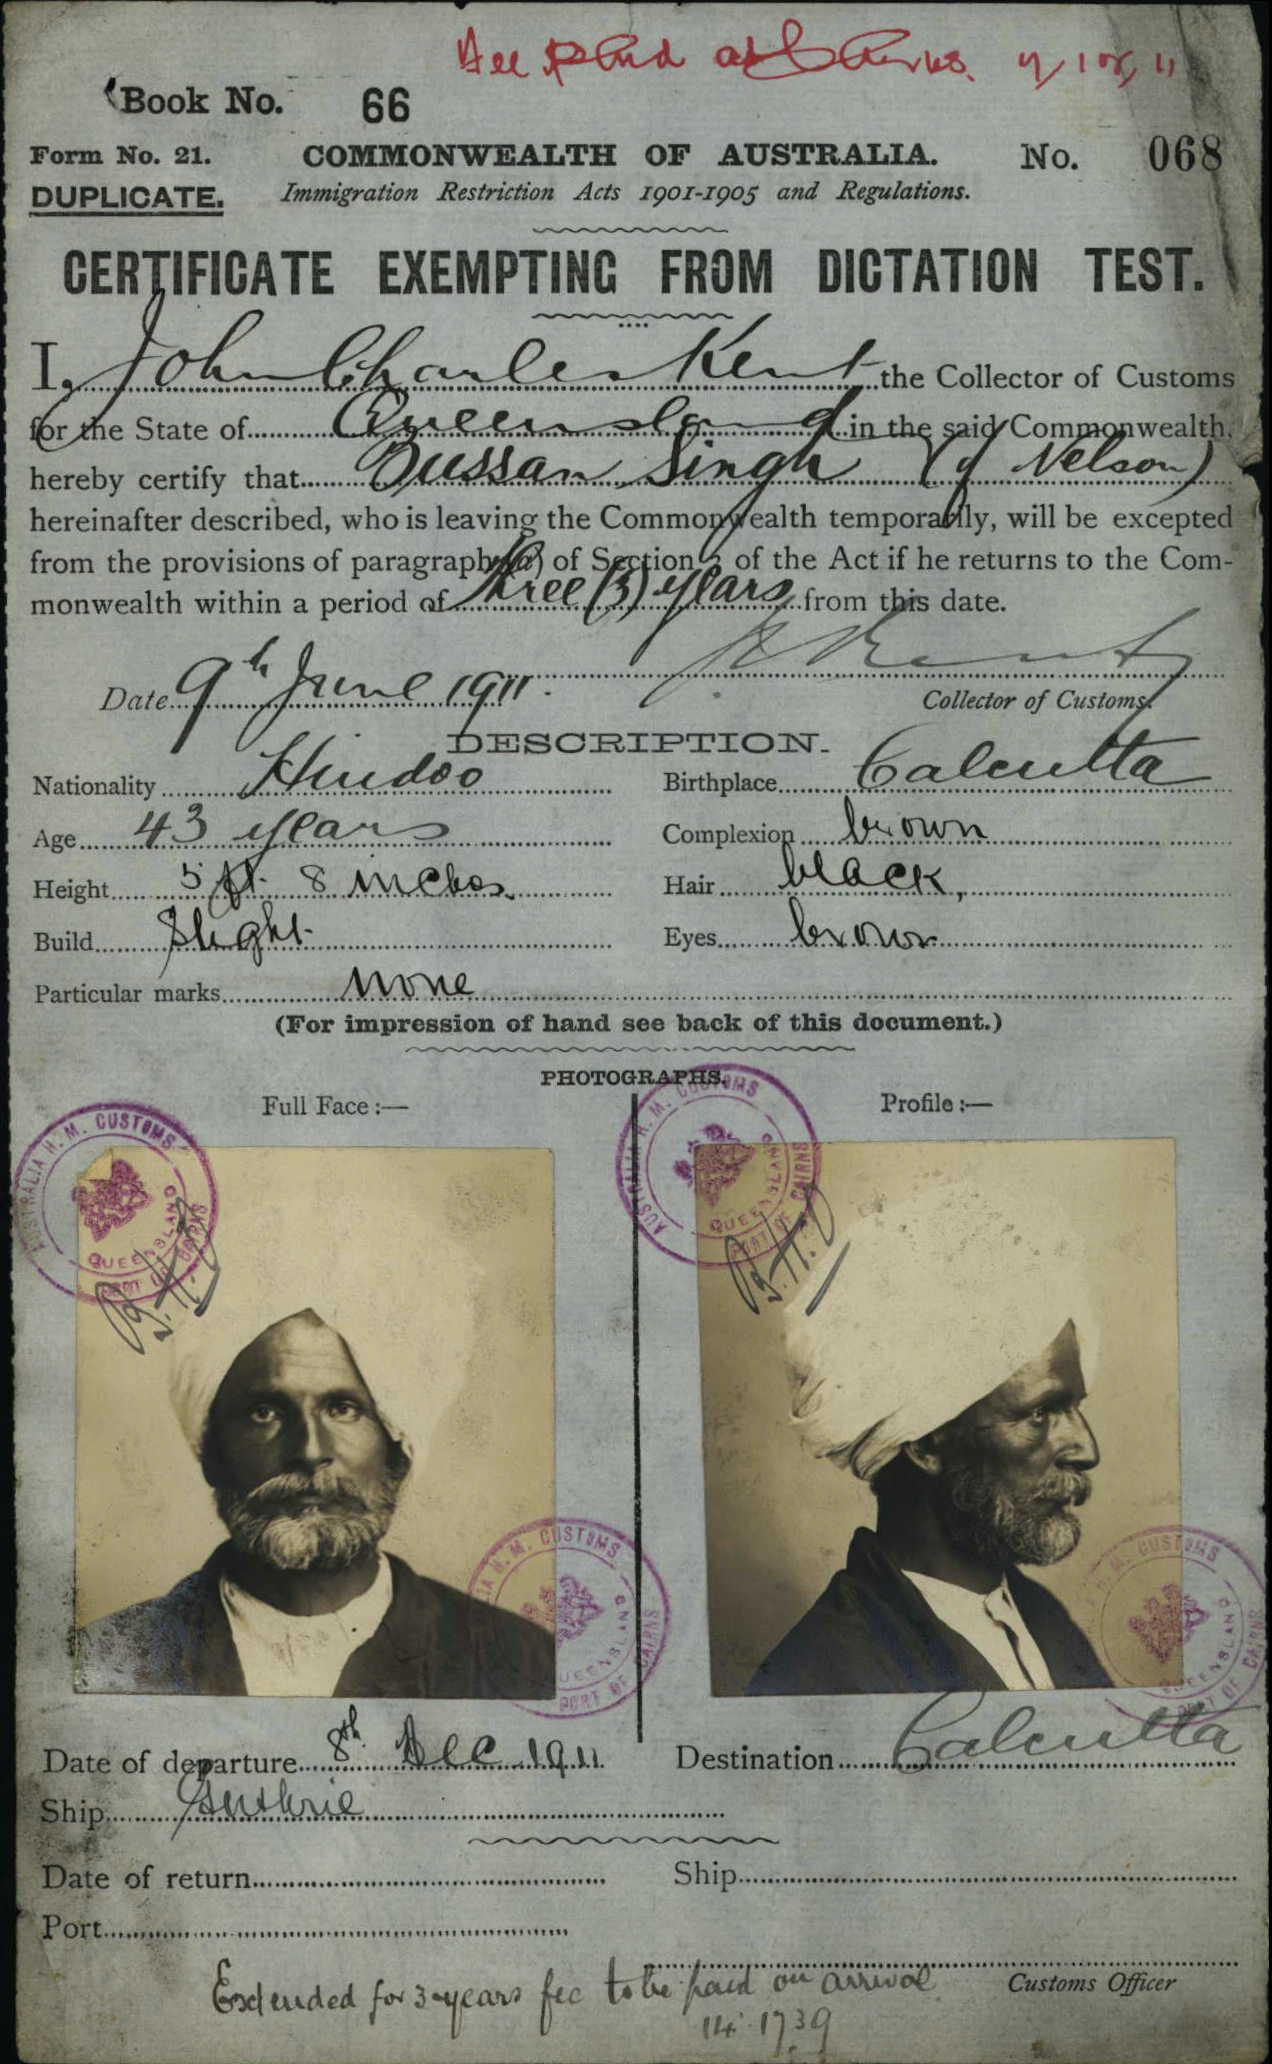 Fee Paid at Cairns. 9/10/11
Book No. 66
Form No. 21. COMMONWEALTH OF AUSTRALIA. No. 068
DUPLICATE. Immigration Restriction Acts 1901-1905 and Regulations.
CERTIFICATE EXEMPTING FROM DICTATION TEST.
I, John Charles Kent the Collector of Customs
for the State of Queensland in the said Commonwealth,
hereby certify that Bussan Singh (of Nelson)
hereinafter described, who is leaving the Commonwealth temporarily, will be excepted
from the provisions of paragraph (a) of Section 3 of the Act if he returns to the Com-
monwealth within a period of three (3) years from this date.
Date 9th June 1911. Collector of Customs.
DESCRIPTION.
Nationality Hindoo Birthplace Calcutta
Age 43 years Complexion brown
Height 5 ft. 8 inches Hair black,
Build Slight Eyes brown
Particular marks none
(For impression of hand see back of this document.)
PHOTOGRAPHS.
Full Face :— Profile :—
AUSTRALIA H. M. CUSTOMS QUEENSLAND PORT OF CAIRNS
AUSTRALIA H. M. CUSTOMS QUEENSLAND PORT OF CAIRNS
H. M. CUSTOMS QUEENSLAND PORT OF CAIRNS
H. M. CUSTOMS QUEENSLAND PORT OF CAIRNS
Date of departure 8th. Dec 1911 Destination Calcutta
Ship Guthrie
Date of return Ship
Port
Customs Officer
Extended for 3 years fee to be paid on arrival
14.1739